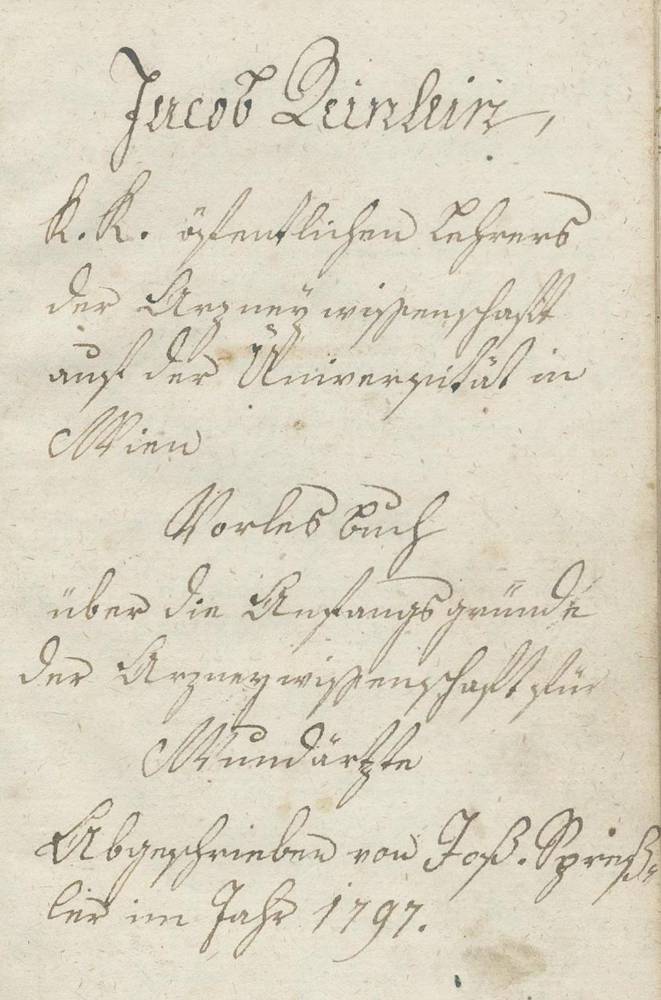 Jacob Reinlein,
K. K. öffentlichen Lehrers
der Arzneywissenschaft
auf der Universität in
Wien
Vorles buch
über die Anfangsgründe
der Arzneywissenschaft für
Wundärtzte
Abgeschrieben von Jos.
ler im Jahr 1797.